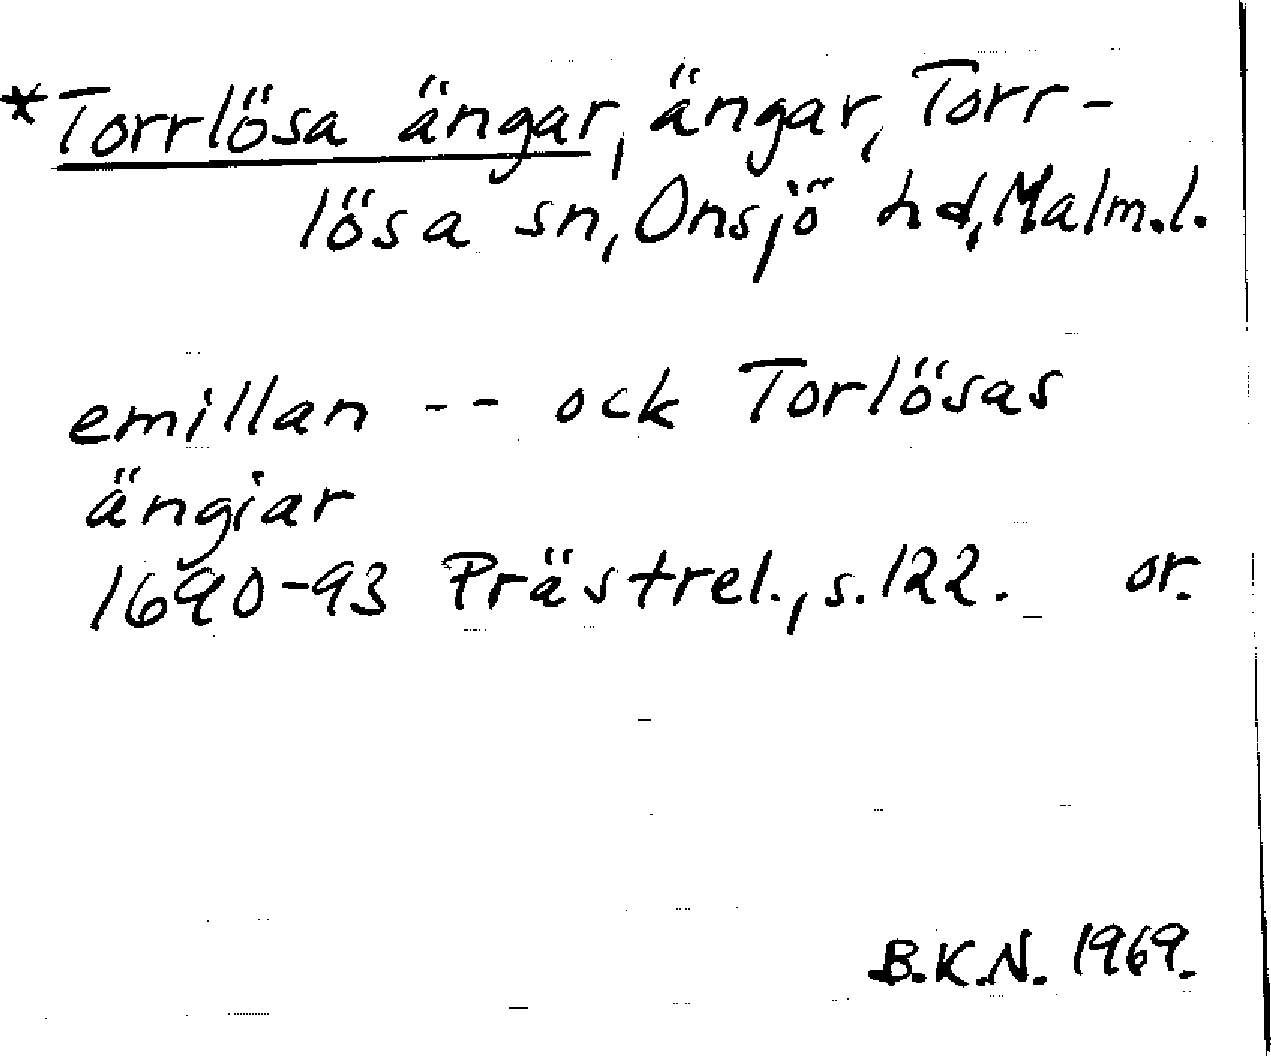 *Torrlösa ängar, ängar, Torr-
lösa sn, Onsjö hd, Malm.l.
emillan -- ock Torlösas
ängiar
1690-93 Prästrel., s.122. or.
B.K.N. 1969.